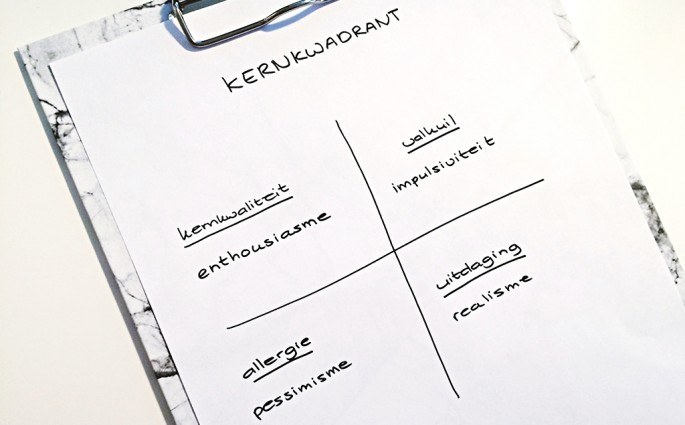 KERNKWADRANT
kernkwaliteit
enthousiasme
valkuil
impulsiviteit
allergie
pessimisme
uitdaging
realisme